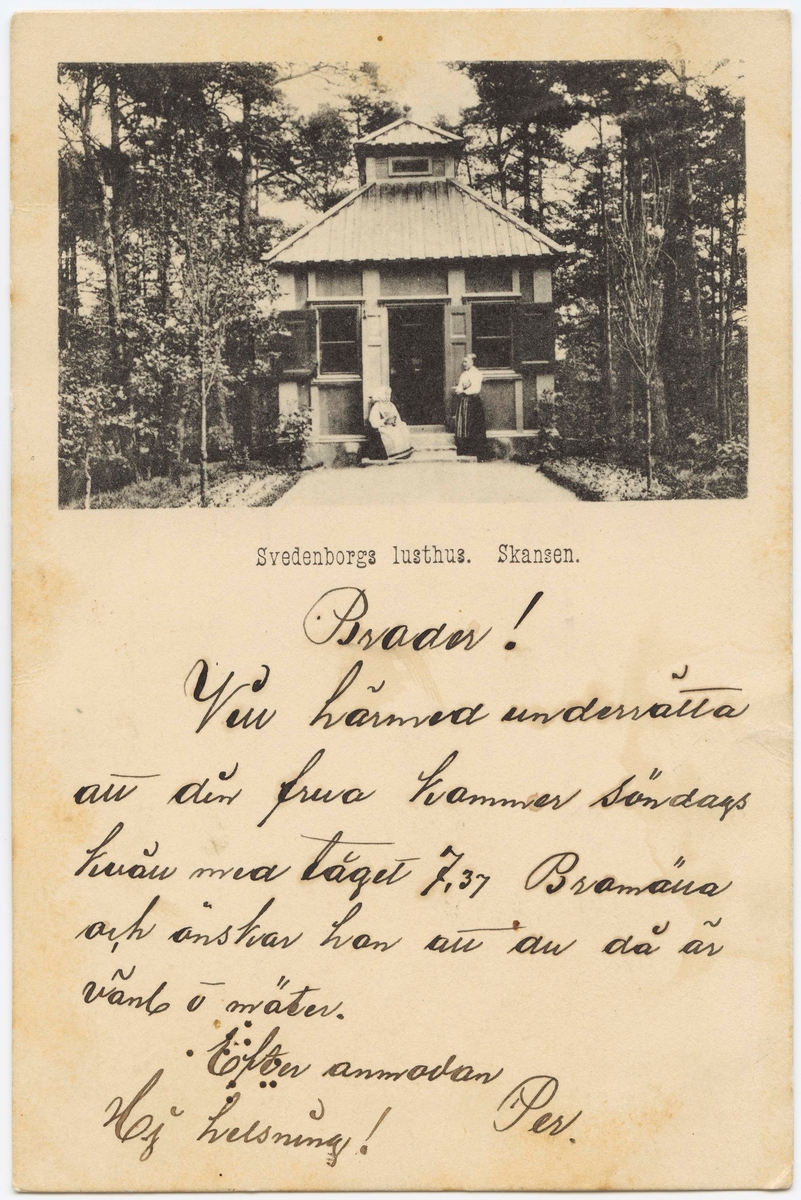 Svedenborgs lusthus. Skansen.
Broder!
Vill härmed underrätta
att din frua kommer söndags
kväll med tåget 7,37 Bromölla
och önskar hon att du då är
vänl o möter.
Efter anmodan
Hj helsning! Per.